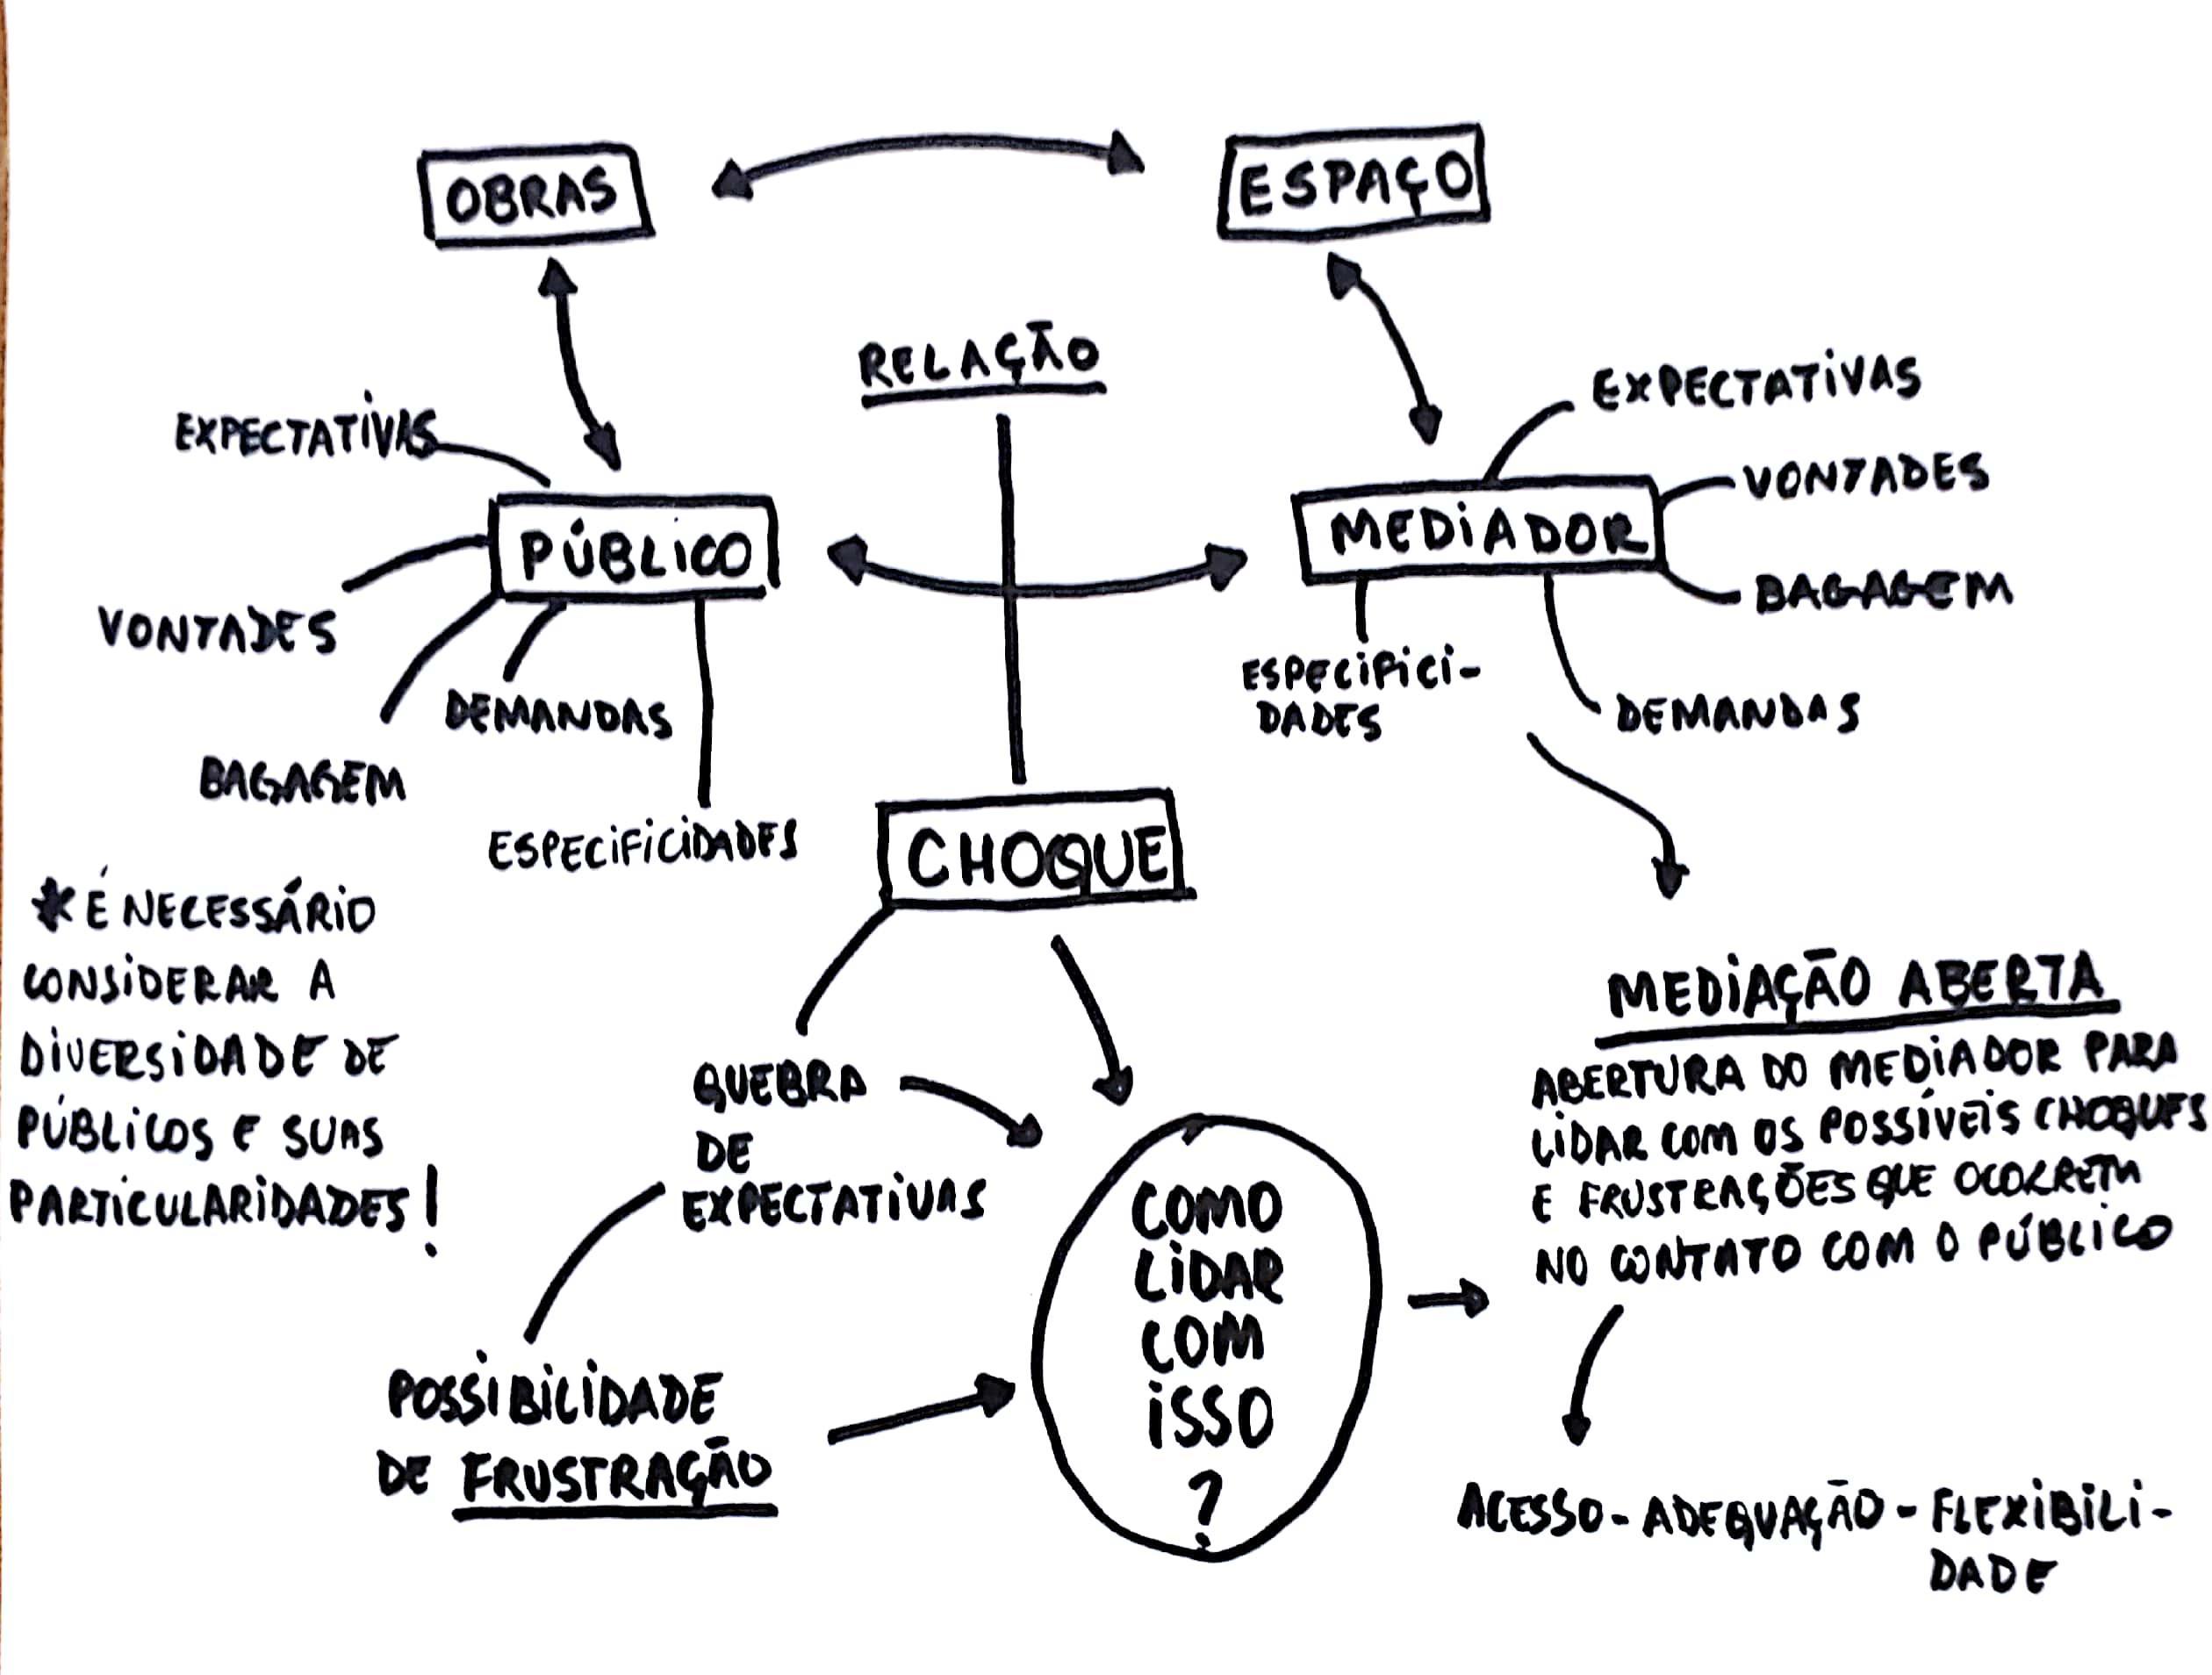 OBRAS
ESPAÇO
RELAÇÃO
EXPECTATIVAS
PÚBLICO
VONTADES
BAGAGEM
DEMANDAS
ESPECIFICIDADES
MEDIADOR
EXPECTATIVAS
VONTADES
BAGAGEM
ESPECIFICI-
DADES
DEMANDAS
CHOQUE
* É NECESSÁRIO
CONSIDERAR A
DIVERSIDADE DE
PÚBLICOS E SUAS
PARTICULARIDADES!
QUEBRA
DE
EXPECTATIVAS
POSSIBILIDADE
DE FRUSTRAÇÃO
COMO
LIDAR
COM
ISSO
?
MEDIAÇÃO ABERTA
ABERTURA DO MEDIADOR PARA
LIDAR COM OS POSSÍVEIS CHOQUES
E FRUSTRAÇÕES QUE OCORREM
NO CONTATO COM O PÚBLICO
ACESSO - ADEQUAÇÃO - FLEXIBILI-
DADE